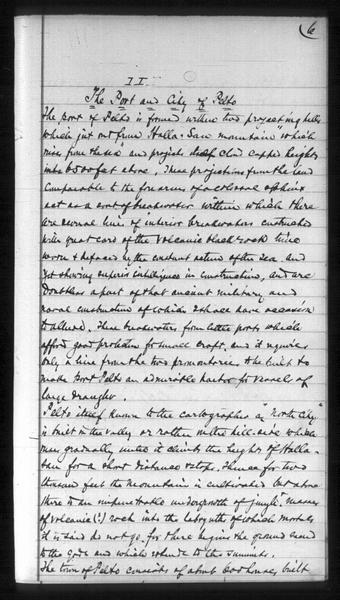 6
II
The Port and City of Pelto
The port of Pelto is formed within two projecting hills
which jut out from "Halla-San mountain" which
rises from the sea and projects its cloud capped heights
into 6500 feet above. These projections from the land
comparable to the forearms of a colossal sphinx
act as a sort of breakwater within which there
are several lines of interior breakwaters constructed
with great care of the volcanic black rock
worn & defaced by the constant action of the sea, and
yet showing superior intelligence in construction, and are
doubtless a part of that ancient military and
naval construction of which I shall have occasion
to allude. These breakwaters form little ports which
afford good protection for small craft, and it requires
only a line from the two promontories to be built to
make Port Pelto an admirable harbor for vessels of
large draught.
Pelto itself known to the cartographer as "North City"
is built in the valley or rather on the hill-side which
rises gradually until it climbs the heights of Halla-
San for a short distance & stops. Thence for two
thousand feet the mountain is cultivated but above
there is an impenetrable undergrowth of jungle, masses
of volcanic (?) rock into the labyrinth of which mortals
it is said do not go, for there begins the ground sacred
to the gods and which extends to the summit.
The town of Pelto consists of about 600 houses, built